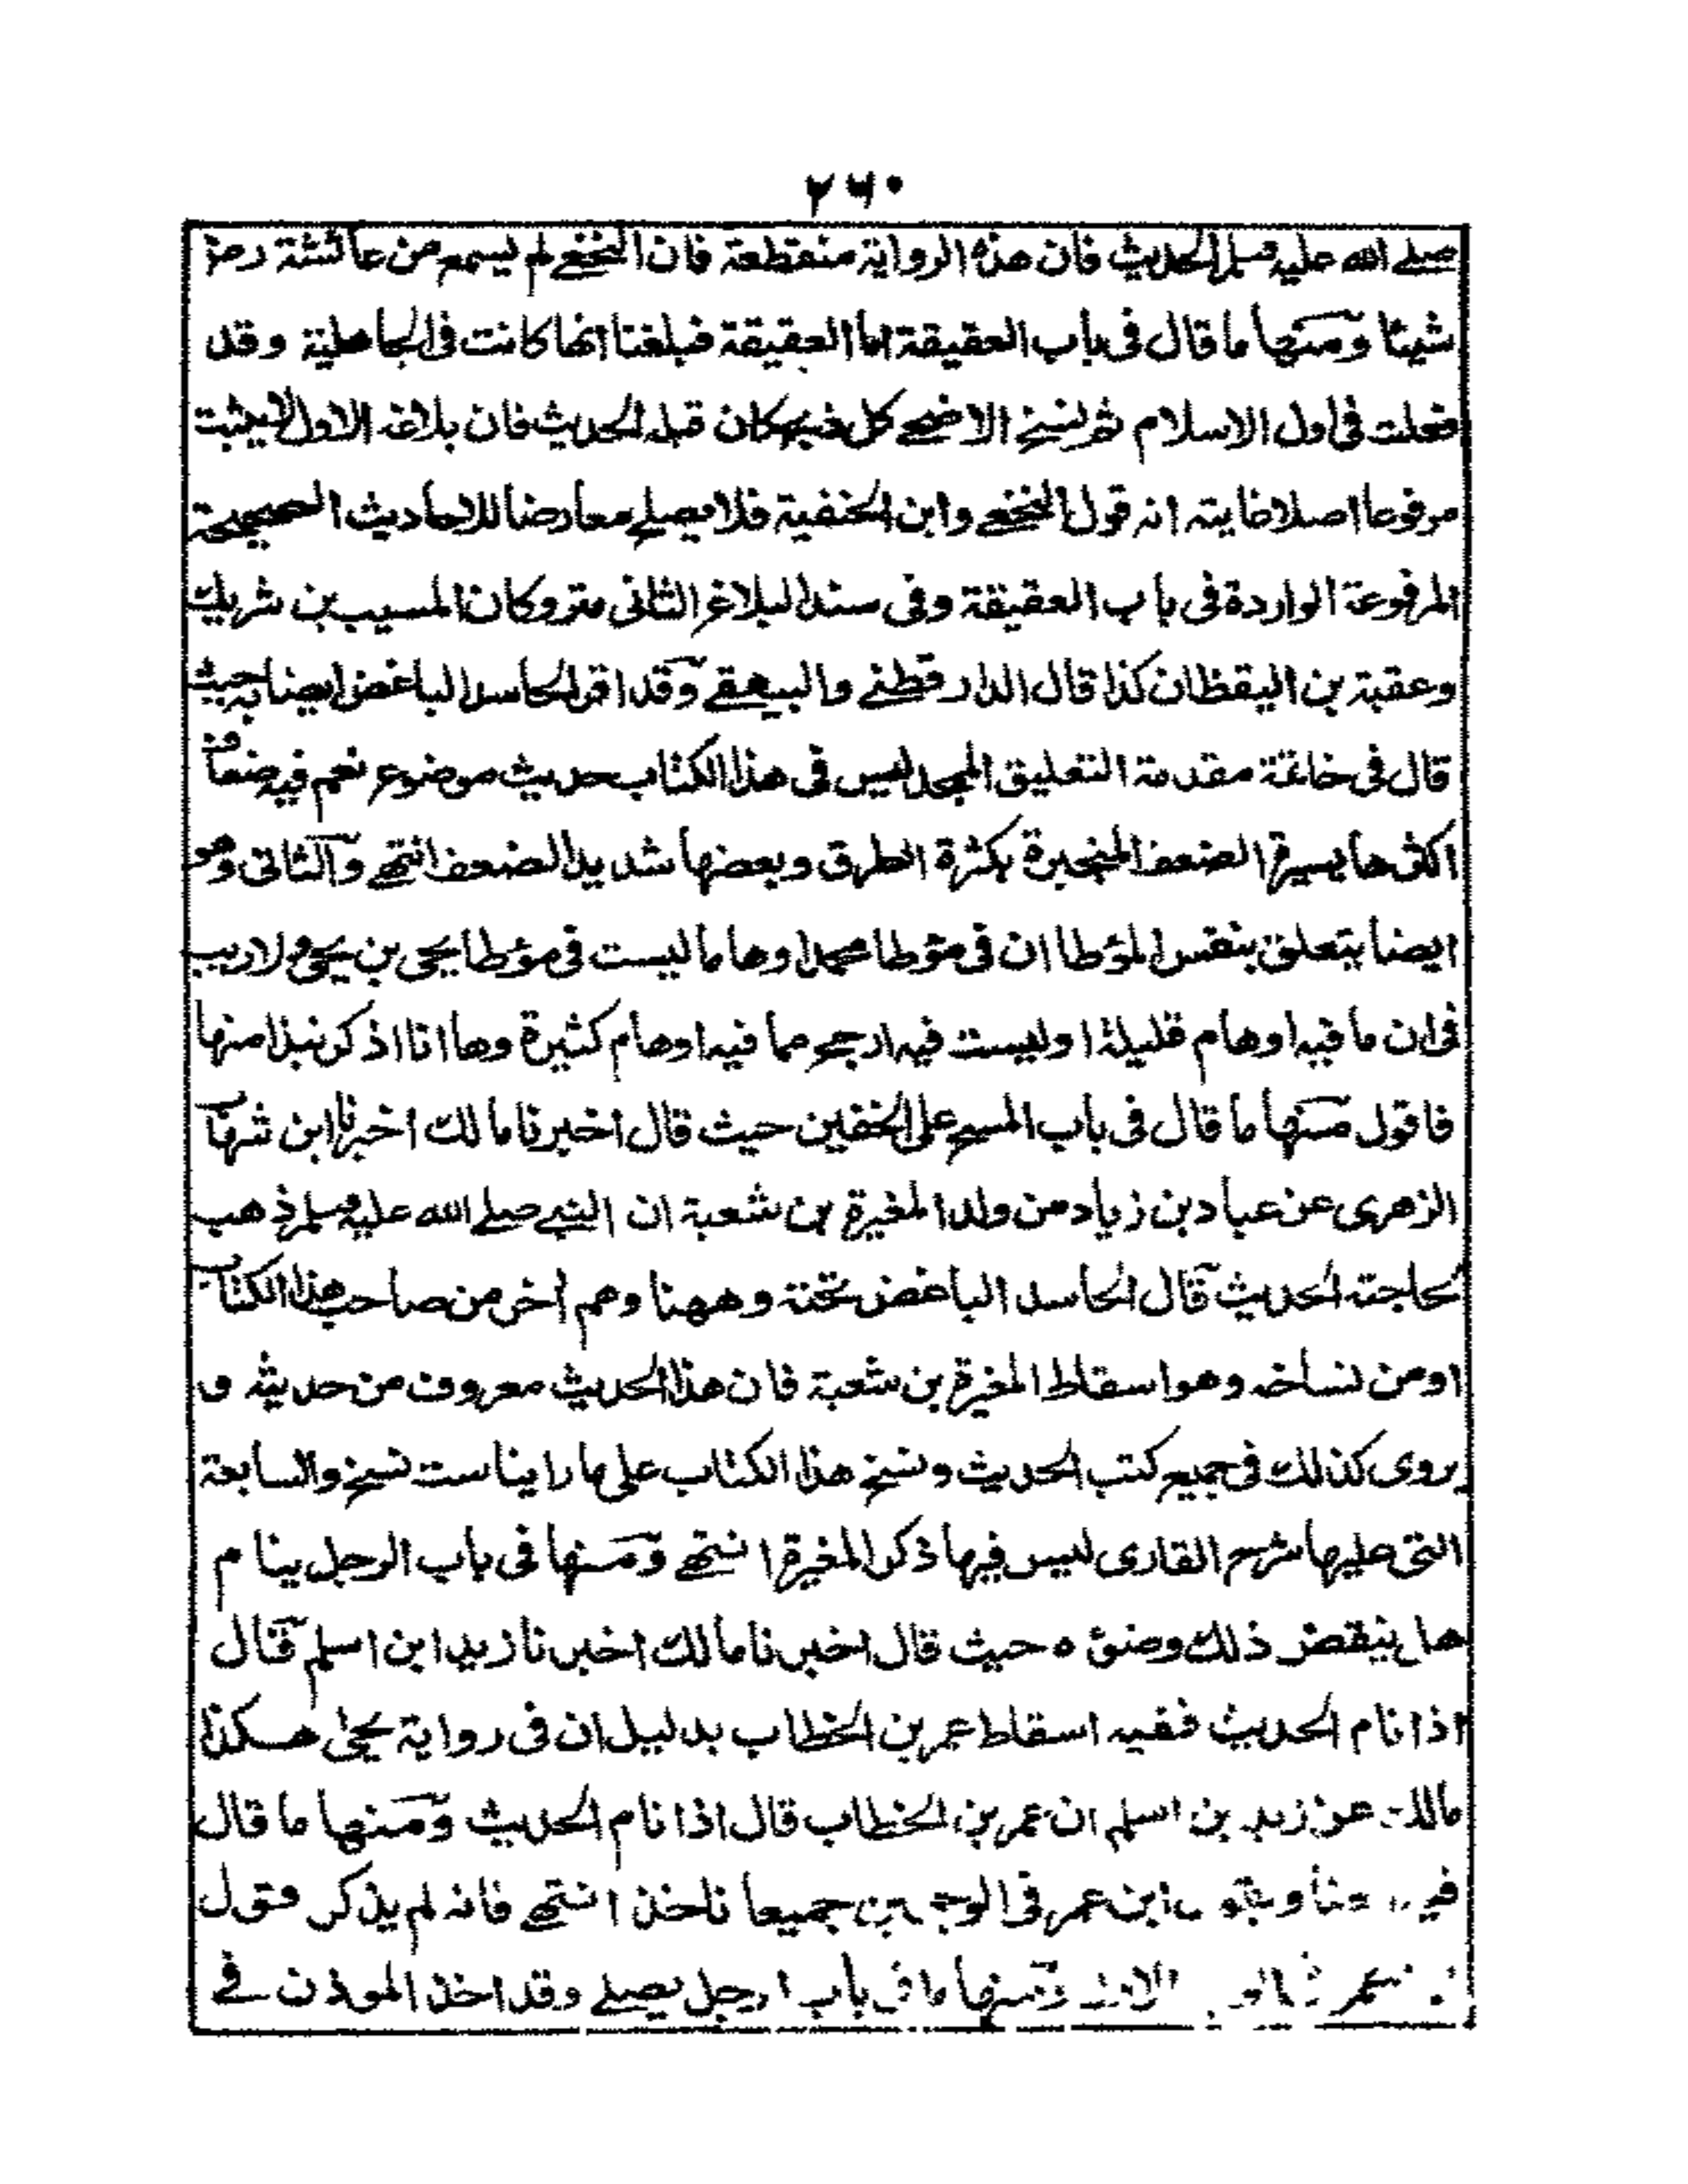 ۲۶۰
صلے الله علیه وسلم الحدیث فان هذه الروایة منقطعة فان النخعے لم یسمع من عائشة رضؤ
شیئا ومنها ما قال فی باب العقیقة اما العقیقة فبلغنا انها کانت فی الجاهلیة وقد
فعلت فی اول الاسلام ثم نسخ الاضحے کل ذبح کان قبله الحدیث فان بلاغه الاول لا یثبت
مرفوعا اصلا غایته انه قول النخعے وابن الحنفیة فلا یصلے معارضا للاحادیث الصحیحة
المرفوعة الواردة فی باب العقیقة وفی سند البلاغ الثانی متروکان المسیب بن شریك
وعقبة بن الیقظان کذا قال الدارقطنے والبیهقے وقد اقر الحاسد الباغض ایضا به حیث
قال فی خاتمة مقدمة التعلیق الممجد لیس فی هذا الکتاب حدیث موضوع نعم فیه ضعاف
اکثرها یسیرة الضعف المنجبرة بکثرة الطرق وبعضها شدید الضعف انتهے والثانی وهو
ایضا یتعلق بنفس المؤطا ان فی مؤطا محمد اوهاما لیست فی مؤطا یحیی بن یحیی ولا ریب
فی ان ما فیه اوهام قلیلة اولیست فیه ارجح مما فیه اوهام کثیرة وها انا اذکر نبذا منها
فاقول منها ما قال فی باب المسح علی الخفین حیث قال اخبرنا مالك اخبرنا ابن شهاب
الزهری عن عباد بن زیاد من ولد المغیرة بن شعبة ان النبے صلے الله علیه وسلم ذهب
لحاجته الحدیث قال الحاسد الباغض تحته وههنا وهم اخر من صاحب هذا الکتاب
او من نساخه وهو اسقاط المغیرة بن شعبة فان هذا الحدیث معروف من حدیثه و
یروی کذلك فی جمیع کتب الحدیث ونسخ هذا الکتاب علی ما راینا ست نسخ والسابعة
التی علیها شرح القاری لیس فیها ذکر المغیرة انتهے ومنها فی باب الرجل ینام
هل ینقض ذلك وضوءه حیث قال اخبرنا مالك اخبرنا زید ابن اسلم قال
اذا نام الحدیث ففیه اسقاط عمر بن الخطاب بدلیل ان فی روایة یحیی هکذا
مالك عن زید بن اسلم ان عمر بن الخطاب قال اذا نام الحدیث ومنها ما قال
فیه وبقول ابن عمر فی الوجهین جمیعا ناخذ انتهے فانه لم یذکر قول
ومنها ما فی باب الرجل یصلے وقد اخذ الموذن فے